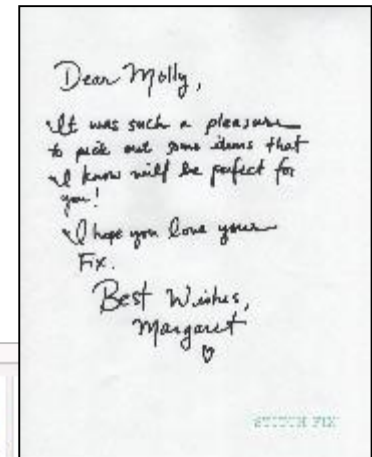 Dear Molly,
It was such a pleasure
to pick out some items that
I know will be perfect for
you!
I hope you love your
Fix.
Best Wishes,
Margaret
STITCH FIX